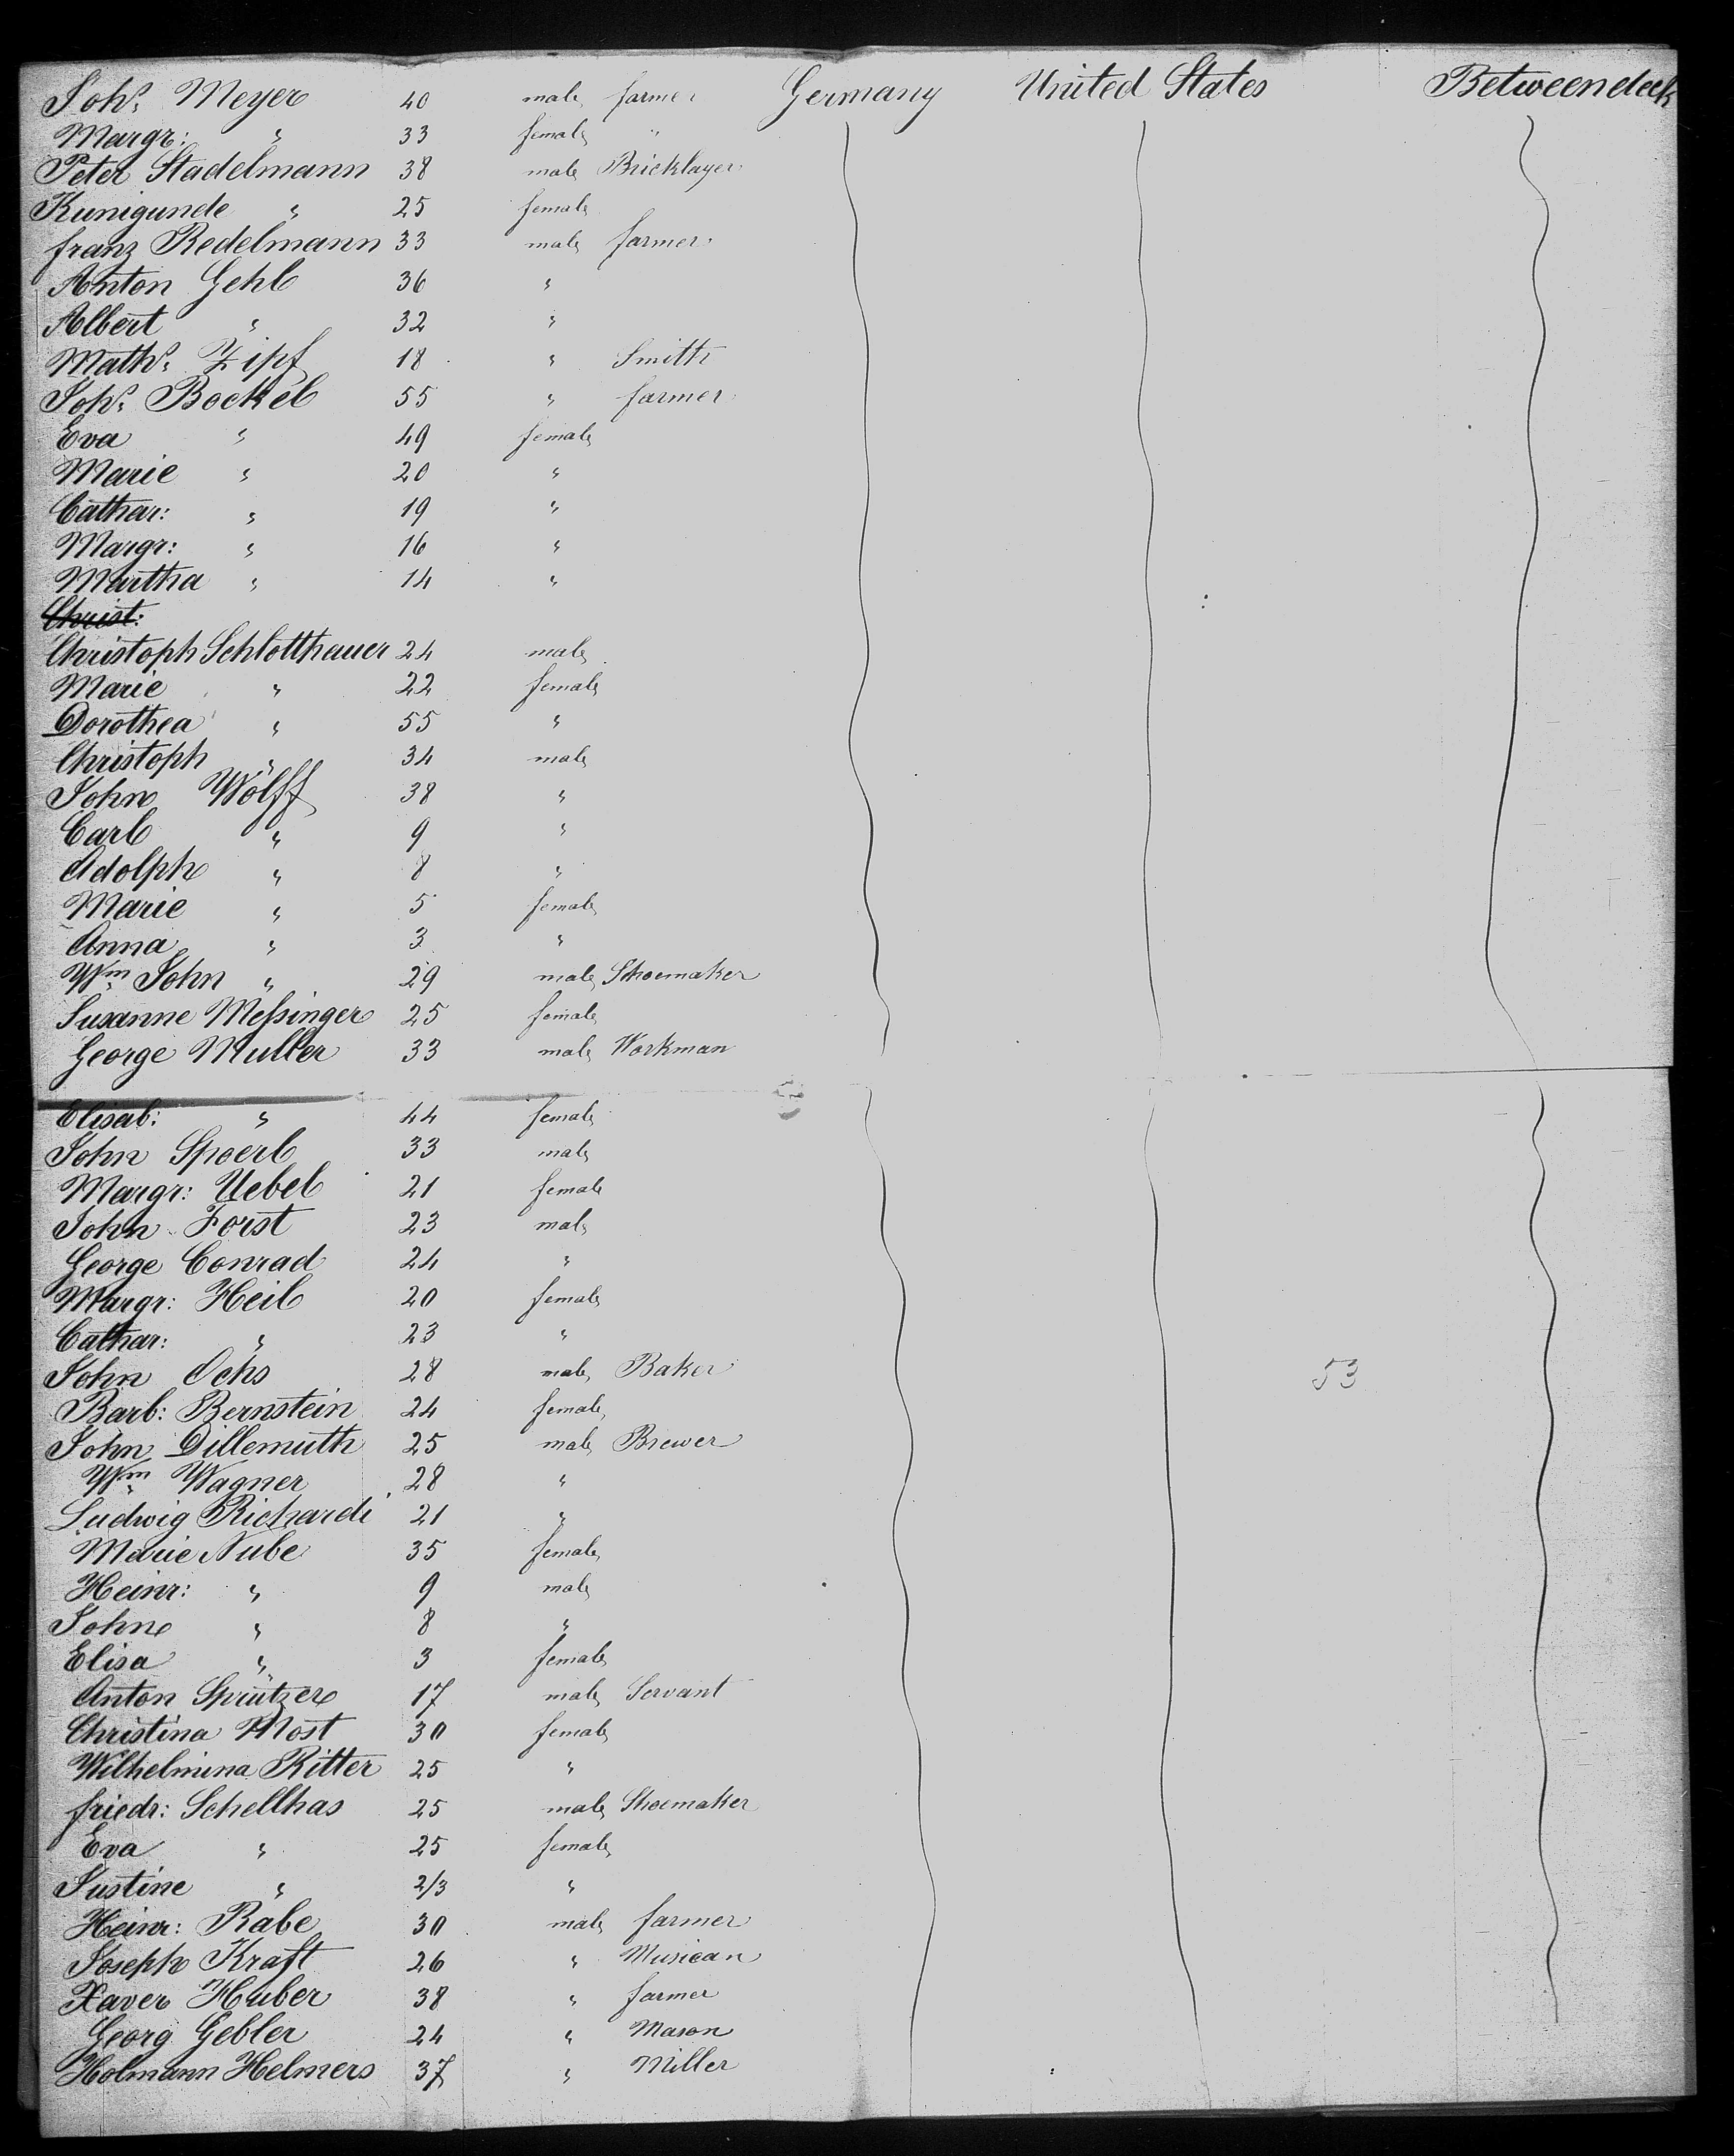 Johs. Meyer 40 male farmer Germany United States Betweendeck
Margr: " 33 female "
Peter Stadelmann 38 male Bricklayer
Kunigunde " 25 female
franz Redelmann 33 male farmer
Anton Gehl 36 "
Albert " 32 "
Maths. Zipf 18 " Smith
Johs. Boekel 55 " farmer
Eva " 49 female
Marie " 20 "
Cathar: " 19 "
Margr: " 16 "
Martha " 14 "
Christ:
Christoph Schlotthauer 24 male
Marie " 22 female
Dorothea " 55 "
Christoph " 34 male
John Wolff 38 "
Carl " 9 "
Adolph " 8 "
Marie " 5 female
Anna " 3 "
Wm John " 29 male Shoemaker
Susanne Meßinger 25 female
George Muller 33 male Workman
Elisab: " 44 female
John Spoerl 33 male
Margr: Uebel 21 female
John Forst 23 male
George Conrad 24 "
Margr: Heil 20 female
Cathar: " 23 "
John Ochs 28 male Baker 53
Barb: Bernstein 24 female
John Dillemuth 25 male Brewer
Wm Wagner 28 "
Ludwig Richardi 21 "
Marie Nube 35 female
Heinr: " 9 male
John " 8 "
Elisa " 3 female
Anton Sprützer 17 male Servant
Christina Most 30 female
Wilhelmina Ritter 25 "
friedr: Schellhas 25 male Shoemaker
Eva " 25 female
Justine " 2/3 "
Heinr: Rabe 30 male farmer
Joseph Kraft 26 " Musican
Xaver Huber 38 " farmer
Georg Gebler 24 " Mason
Holmann Helmers 37 " Miller